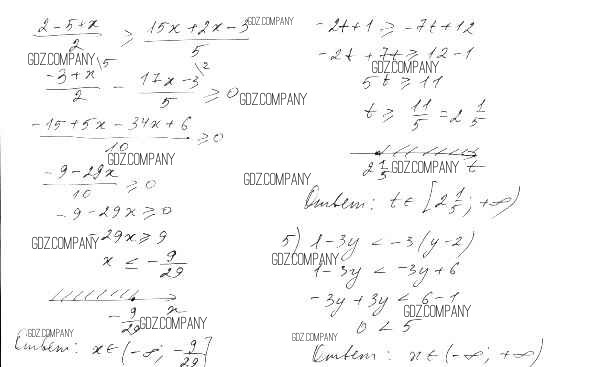 2-5+x / 2 ≥ 15x+2x-3 / 5
GDZ.COMPANY
GDZ.COMPANY \5 \2
-3+x / 2 - 17x-3 / 5 ≥ 0
GDZ.COMPANY
-15+5x-34x+6 / 10 ≥ 0
GDZ.COMPANY
-9-29x / 10 ≥ 0
-9-29x ≥ 0
GDZ.COMPANY -29x ≥ 9
x ≤ -9/29
-9/29 x
GDZ.COMPANY
GDZ.COMPANY
Ответ: x∈(-∞; -9/29]
-2t+1 ≥ -7t+12
-2t+7t ≥ 12-1
GDZ.COMPANY
5t ≥ 11
t ≥ 11/5 = 2 1/5
2 1/5 GDZ.COMPANY t
GDZ.COMPANY
Ответ: t∈[2 1/5; +∞)
5) 1-3y < -3(y-2)
GDZ.COMPANY
1-3y < -3y+6
-3y+3y < 6-1
GDZ.COMPANY
0 < 5
GDZ.COMPANY
Ответ: x∈(-∞; +∞)